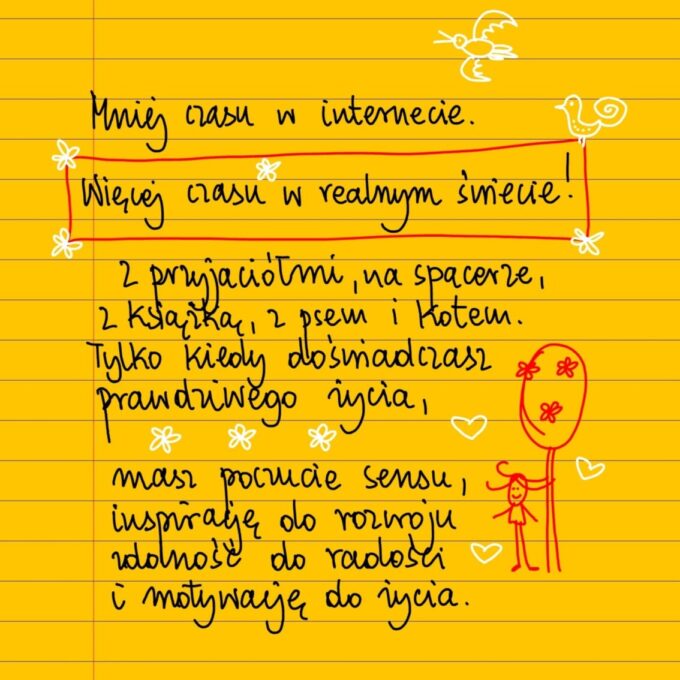 Mniej czasu w internecie.
Więcej czasu w realnym świecie!
z przyjaciółmi, na spacerze,
z książką, z psem i kotem.
Tylko kiedy doświadczasz
prawdziwego życia,
masz poczucie sensu,
inspirację do rozwoju
zdolność do radości
i motywację do życia.